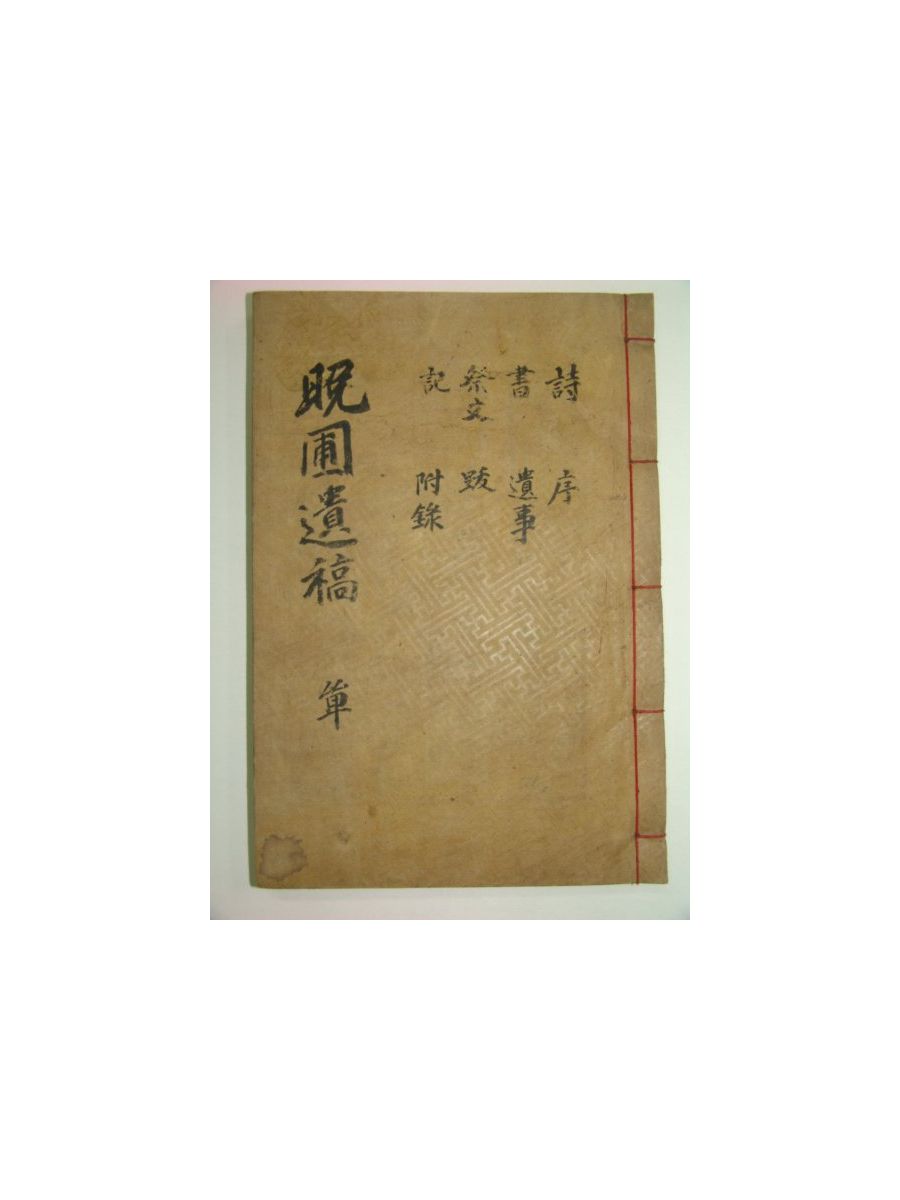 詩 序
書 遺事
祭文 跋
記 附錄
晩圃遺稿 單